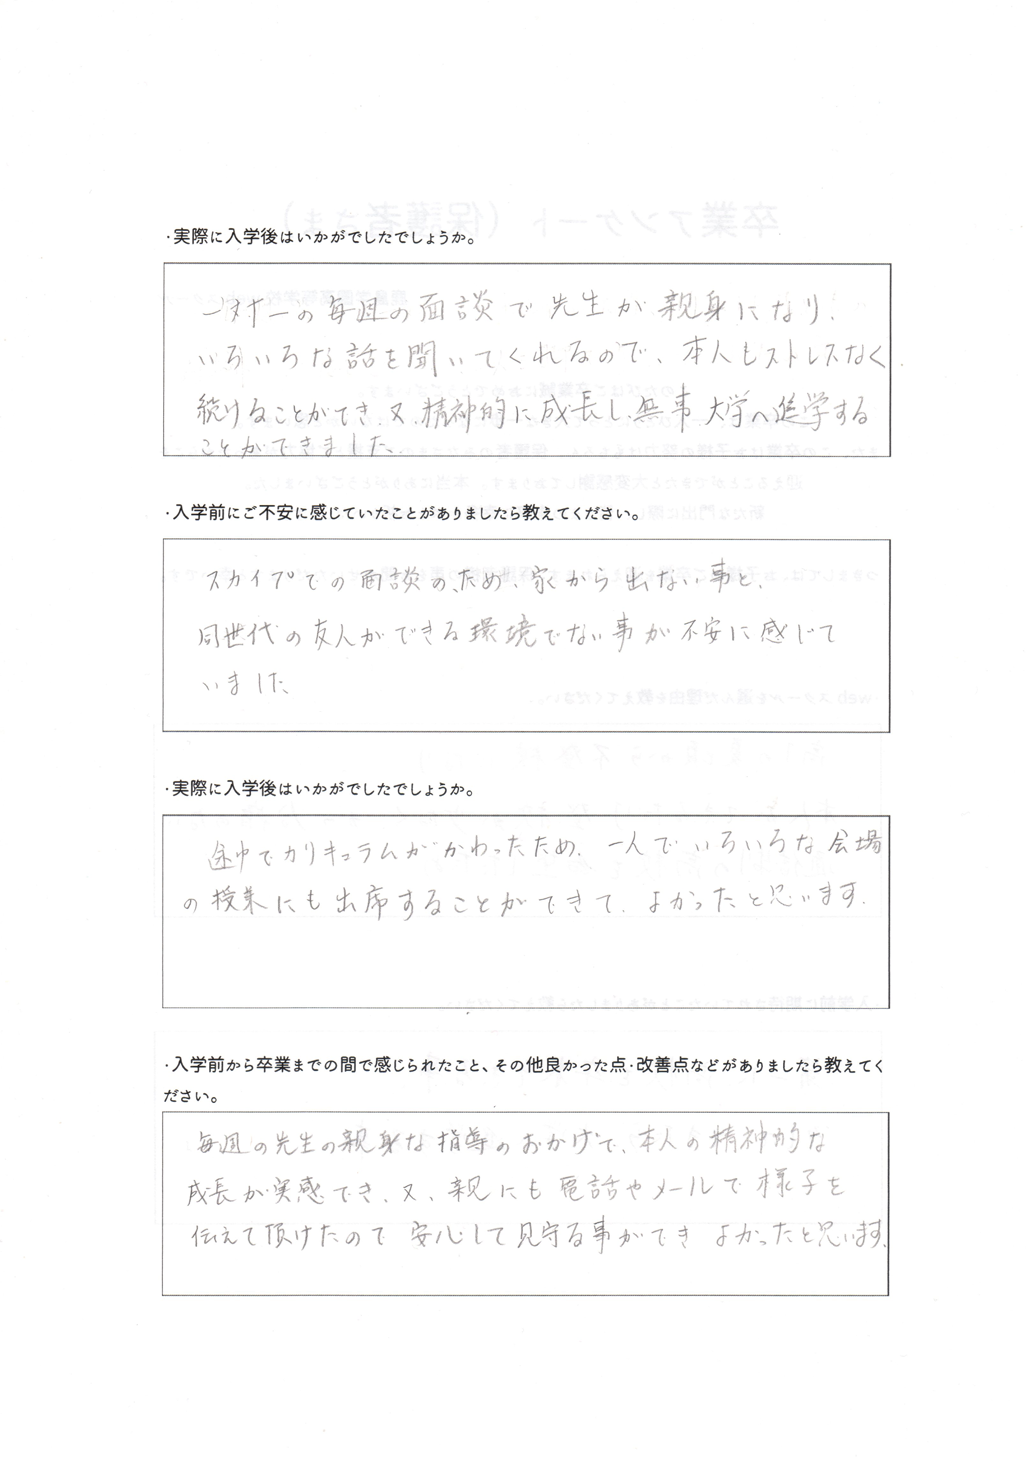 ・実際に入学後はいかがでしたでしょうか。
一対一の毎週の面談で先生が親身になり、
いろいろな話を聞いてくれるので、本人もストレスなく
続けることができ、又、精神的に成長し、無事大学へ進学する
ことができました。
・入学前にご不安に感じていたことがありましたら教えてください。
スカイプでの面談のため、家から出ない事と、
同世代の友人ができる環境でない事が不安に感じて
いました。
・実際に入学後はいかがでしたでしょうか。
途中でカリキュラムがかわったため、一人でいろいろな会場
の授業にも出席することができて、よかったと思います。
・入学前から卒業までの間で感じられたこと、その他良かった点・改善点などがありましたら教えてく
ださい。
毎週の先生の親身な指導のおかげで、本人の精神的な
成長が実感でき、又、親にも電話やメールで様子を
伝えて頂けたので 安心して見守る事ができ よかったと思います。